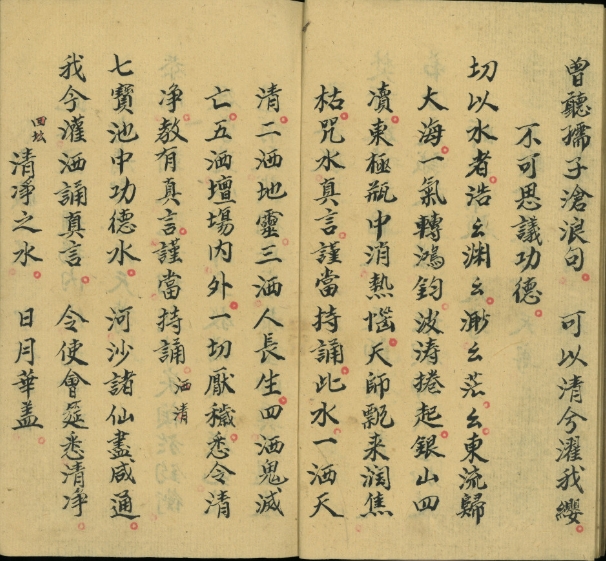 曾聽孺子滄浪句。 可以清兮濯我纓。
不可思議功德。
切以水者。浩々渊々。渺々茫々。東流歸
大海。一氣轉鴻鈞。波涛捲起銀山。四
瀆東極瓶中消熱惱。天師飄来润焦
枯。咒水真言。謹當持誦。此水一洒天
清。二洒地靈。三洒人長生。四洒鬼滅
亡。五洒壇場内外。一切厭穢。悉令清
净。教有真言。謹當持誦。 洒清
七寶池中功德水。 河沙諸仙盡咸通。
我今灌洒誦真言。 令使會筵悉清净。
清净之水。 日月華盖。